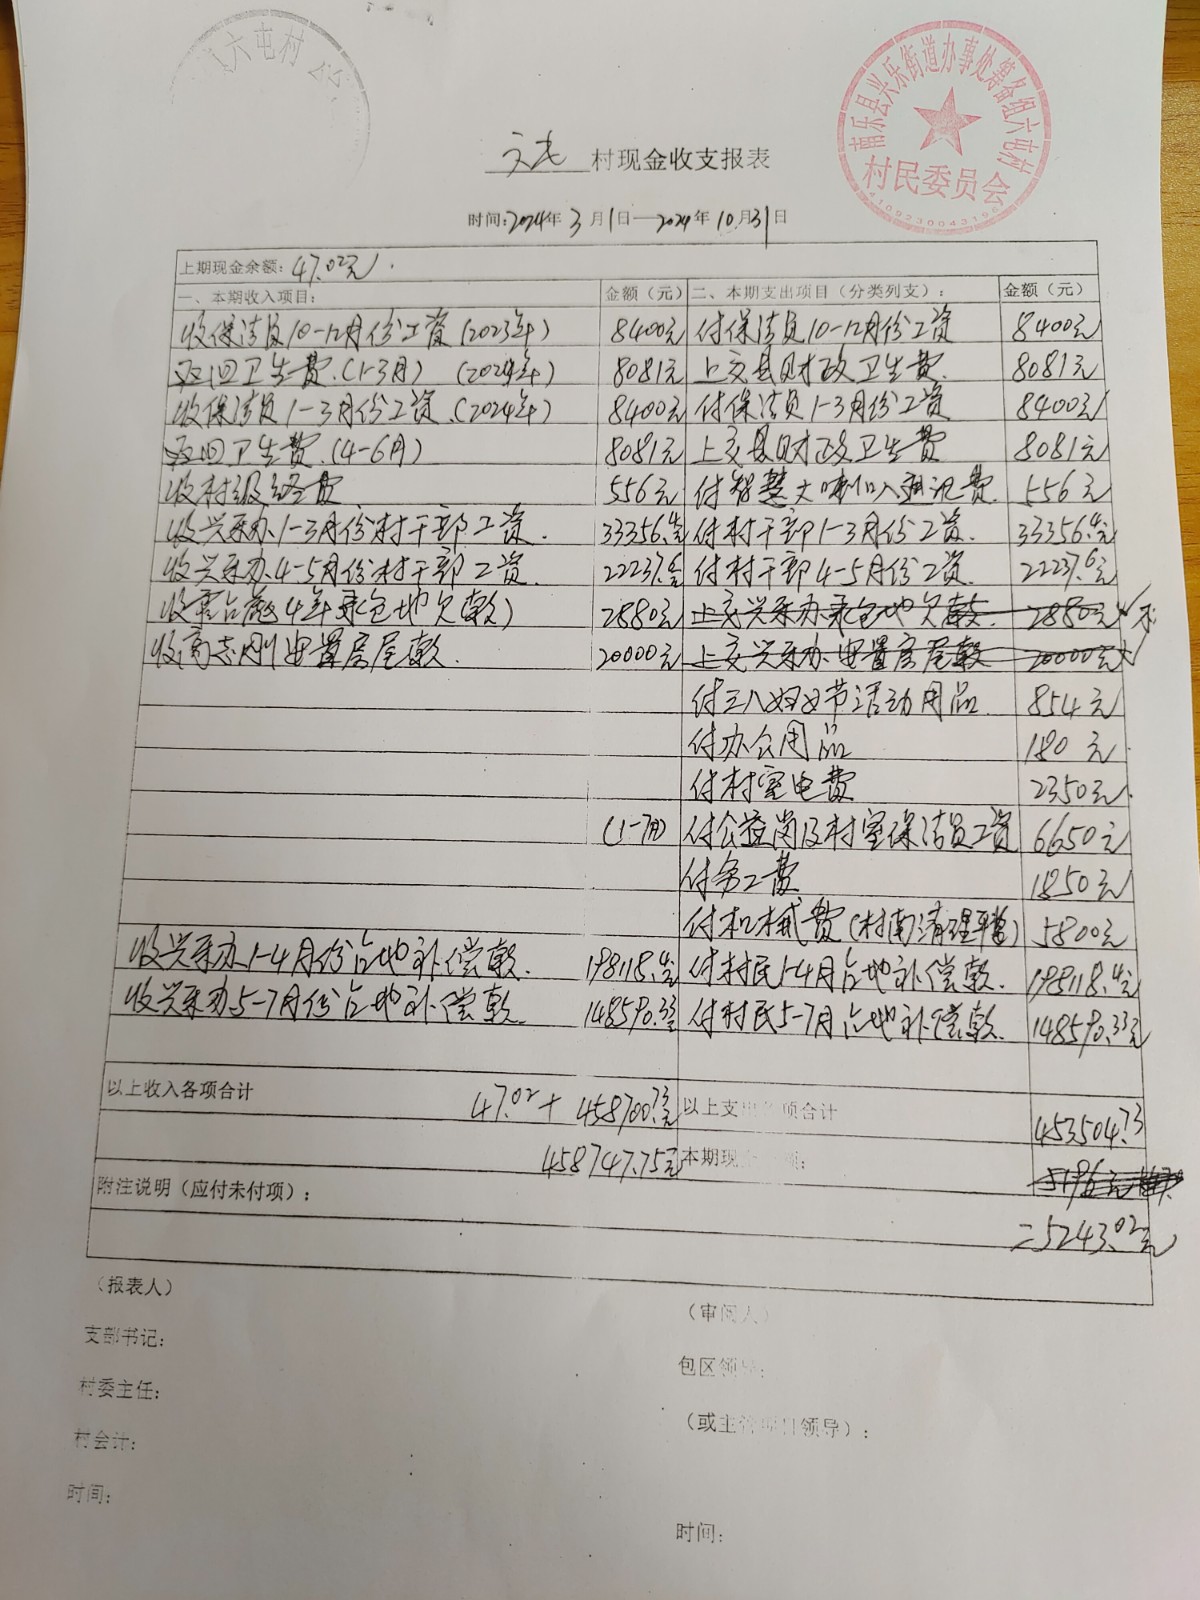 六屯村
南乐县兴乐街道办事处筹备组六屯村
村民委员会
4109230043196
六屯 村现金收支报表
时间:2024年3月1日—2024年10月31日
上期现金余额: 47.02元.
一、本期收入项目: 金额(元) 二、本期支出项目(分类列支): 金额(元)
收保洁员10-12月份工资(2023年) 8400元 付保洁员10-12月份工资 8400元
返回卫生费.(1-3月) (2024年) 8081元 上交县财政卫生费. 8081元
收保洁员1-3月份工资.(2024年) 8400元 付保洁员1-3月份工资 8400元
返回卫生费.(4-6月) 8081元 上交县财政卫生费 8081元
收村级经费 556元 付智慧大喇叭通讯费. 556元
收兴乐办1-3月份村干部工资. 33356.4元 付村干部1-3月份工资. 33356.4元
收兴乐办4-5月份村干部工资. 22237.6元 付村干部4-5月份工资. 22237.6元
4年承包地欠款) 2880元 上交兴乐办承包地欠款. 2880元
收高志刚安置房尾款. 20000元 上交兴乐办安置房尾款 20000元
付三八妇女节活动用品. 854元
付办公用品 180元
付村室电费 2350元.
(1-7月) 付公益岗及村室保洁员工资 6650元
付务工费 1850元
付机械费(村南清理平整) 5800元
收兴乐办1-4月份占地补偿款. 198118.4元 付村民1-4月占地补偿款. 198118.4元
收兴乐办5-7月份占地补偿款. 148590.33元 付村民5-7月占地补偿款. 148590.33元
以上收入各项合计 47.02+458700.73元 以上支出各项合计 453504.73
458747.75元 本期现金余额:
附注说明(应付未付项):
=5243.02元
(报表人)
(审阅人)
支部书记:
包区领导:
村委主任:
(或主管项目领导):
村会计:
时间:
时间: